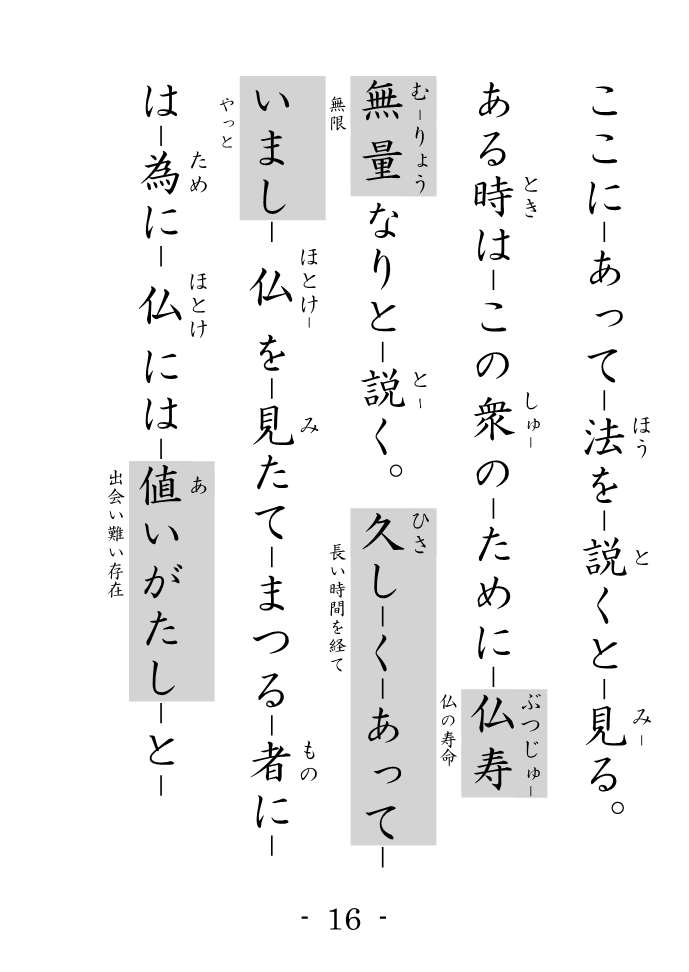 ここに−あって−法を−説くと−見る。
ほう
と
み−
ある時は−この衆の−ために−仏寿
とき
しゅ−
ぶつじゅ−
仏の寿命
無量なりと−説く。久し−く−あって−
む−りょう
と−
ひさ
無限
長い時間を経て
いまし−仏を−見たて−まつる−者に−
ほとけ−
み
もの
やっと
は−為に−仏には−値いがたし−と−
ため
ほとけ
あ
出会い難い存在
- 16 -